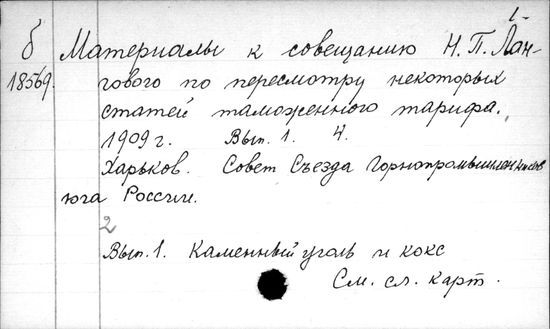 1-
б Материалы к совещанию Н.П. Лан-
18569. гового по пересмотру некоторых
статей таможенного тарифа.
1909 г. Вып. 1. 4.
Харьков. Совет Съезда Горнопромышленников
юга России.
2
Вып. 1. Каменный уголь и кокс
См. сл. карт.